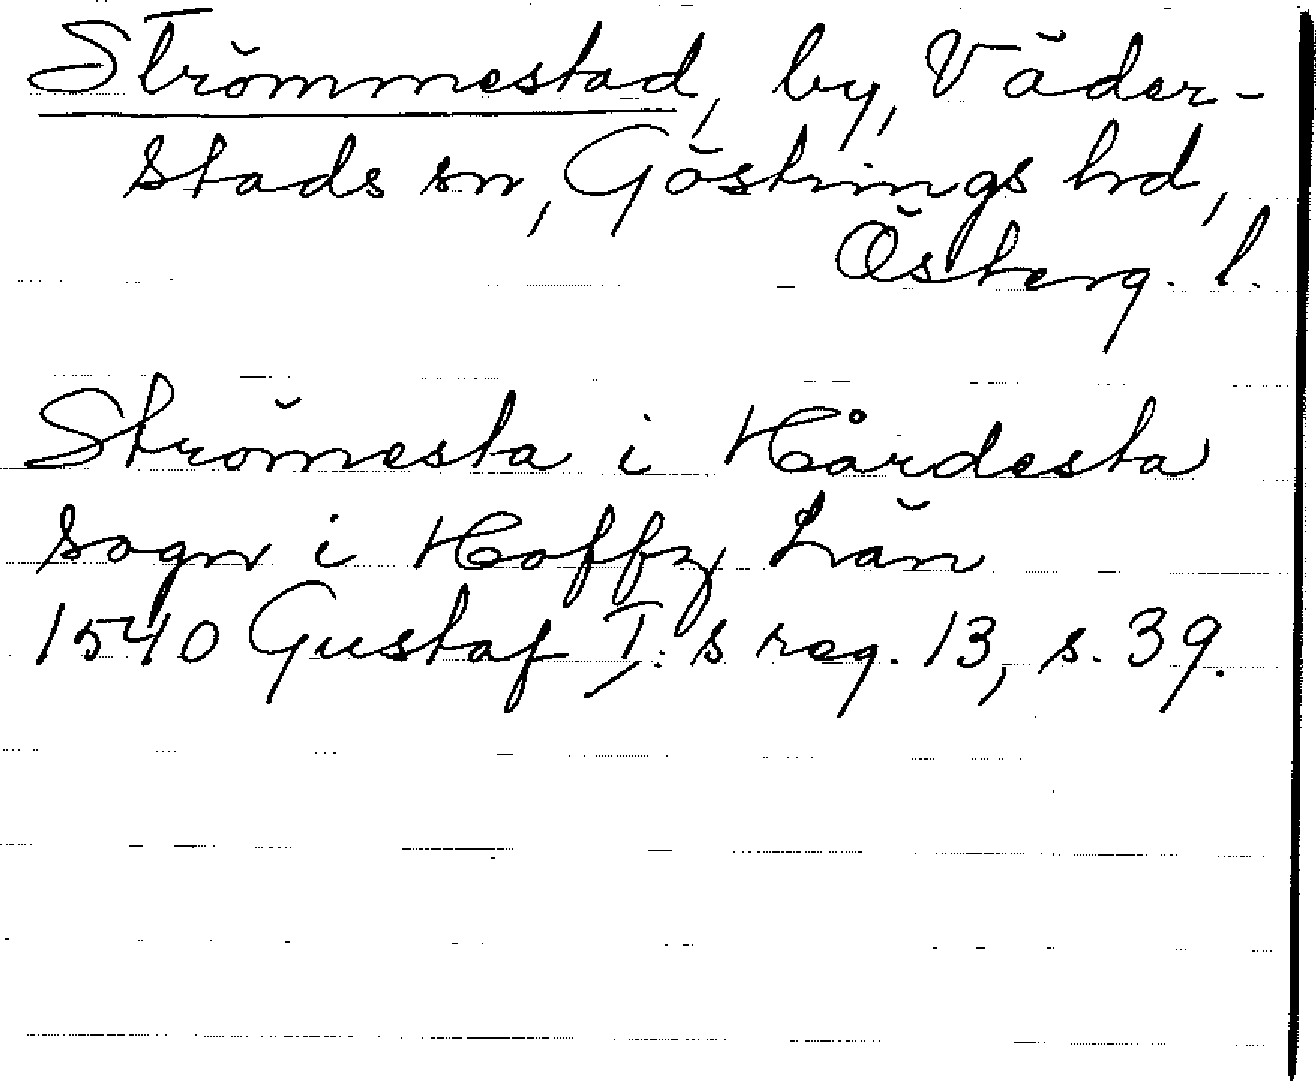 Strömmestad, by, Väder-
stads sn, Göstrings hd,
Österg. l.
Strömesta i Hårdesta
sogn i Hoffz Län
1540 Gustaf I:s reg. 13, s. 39.